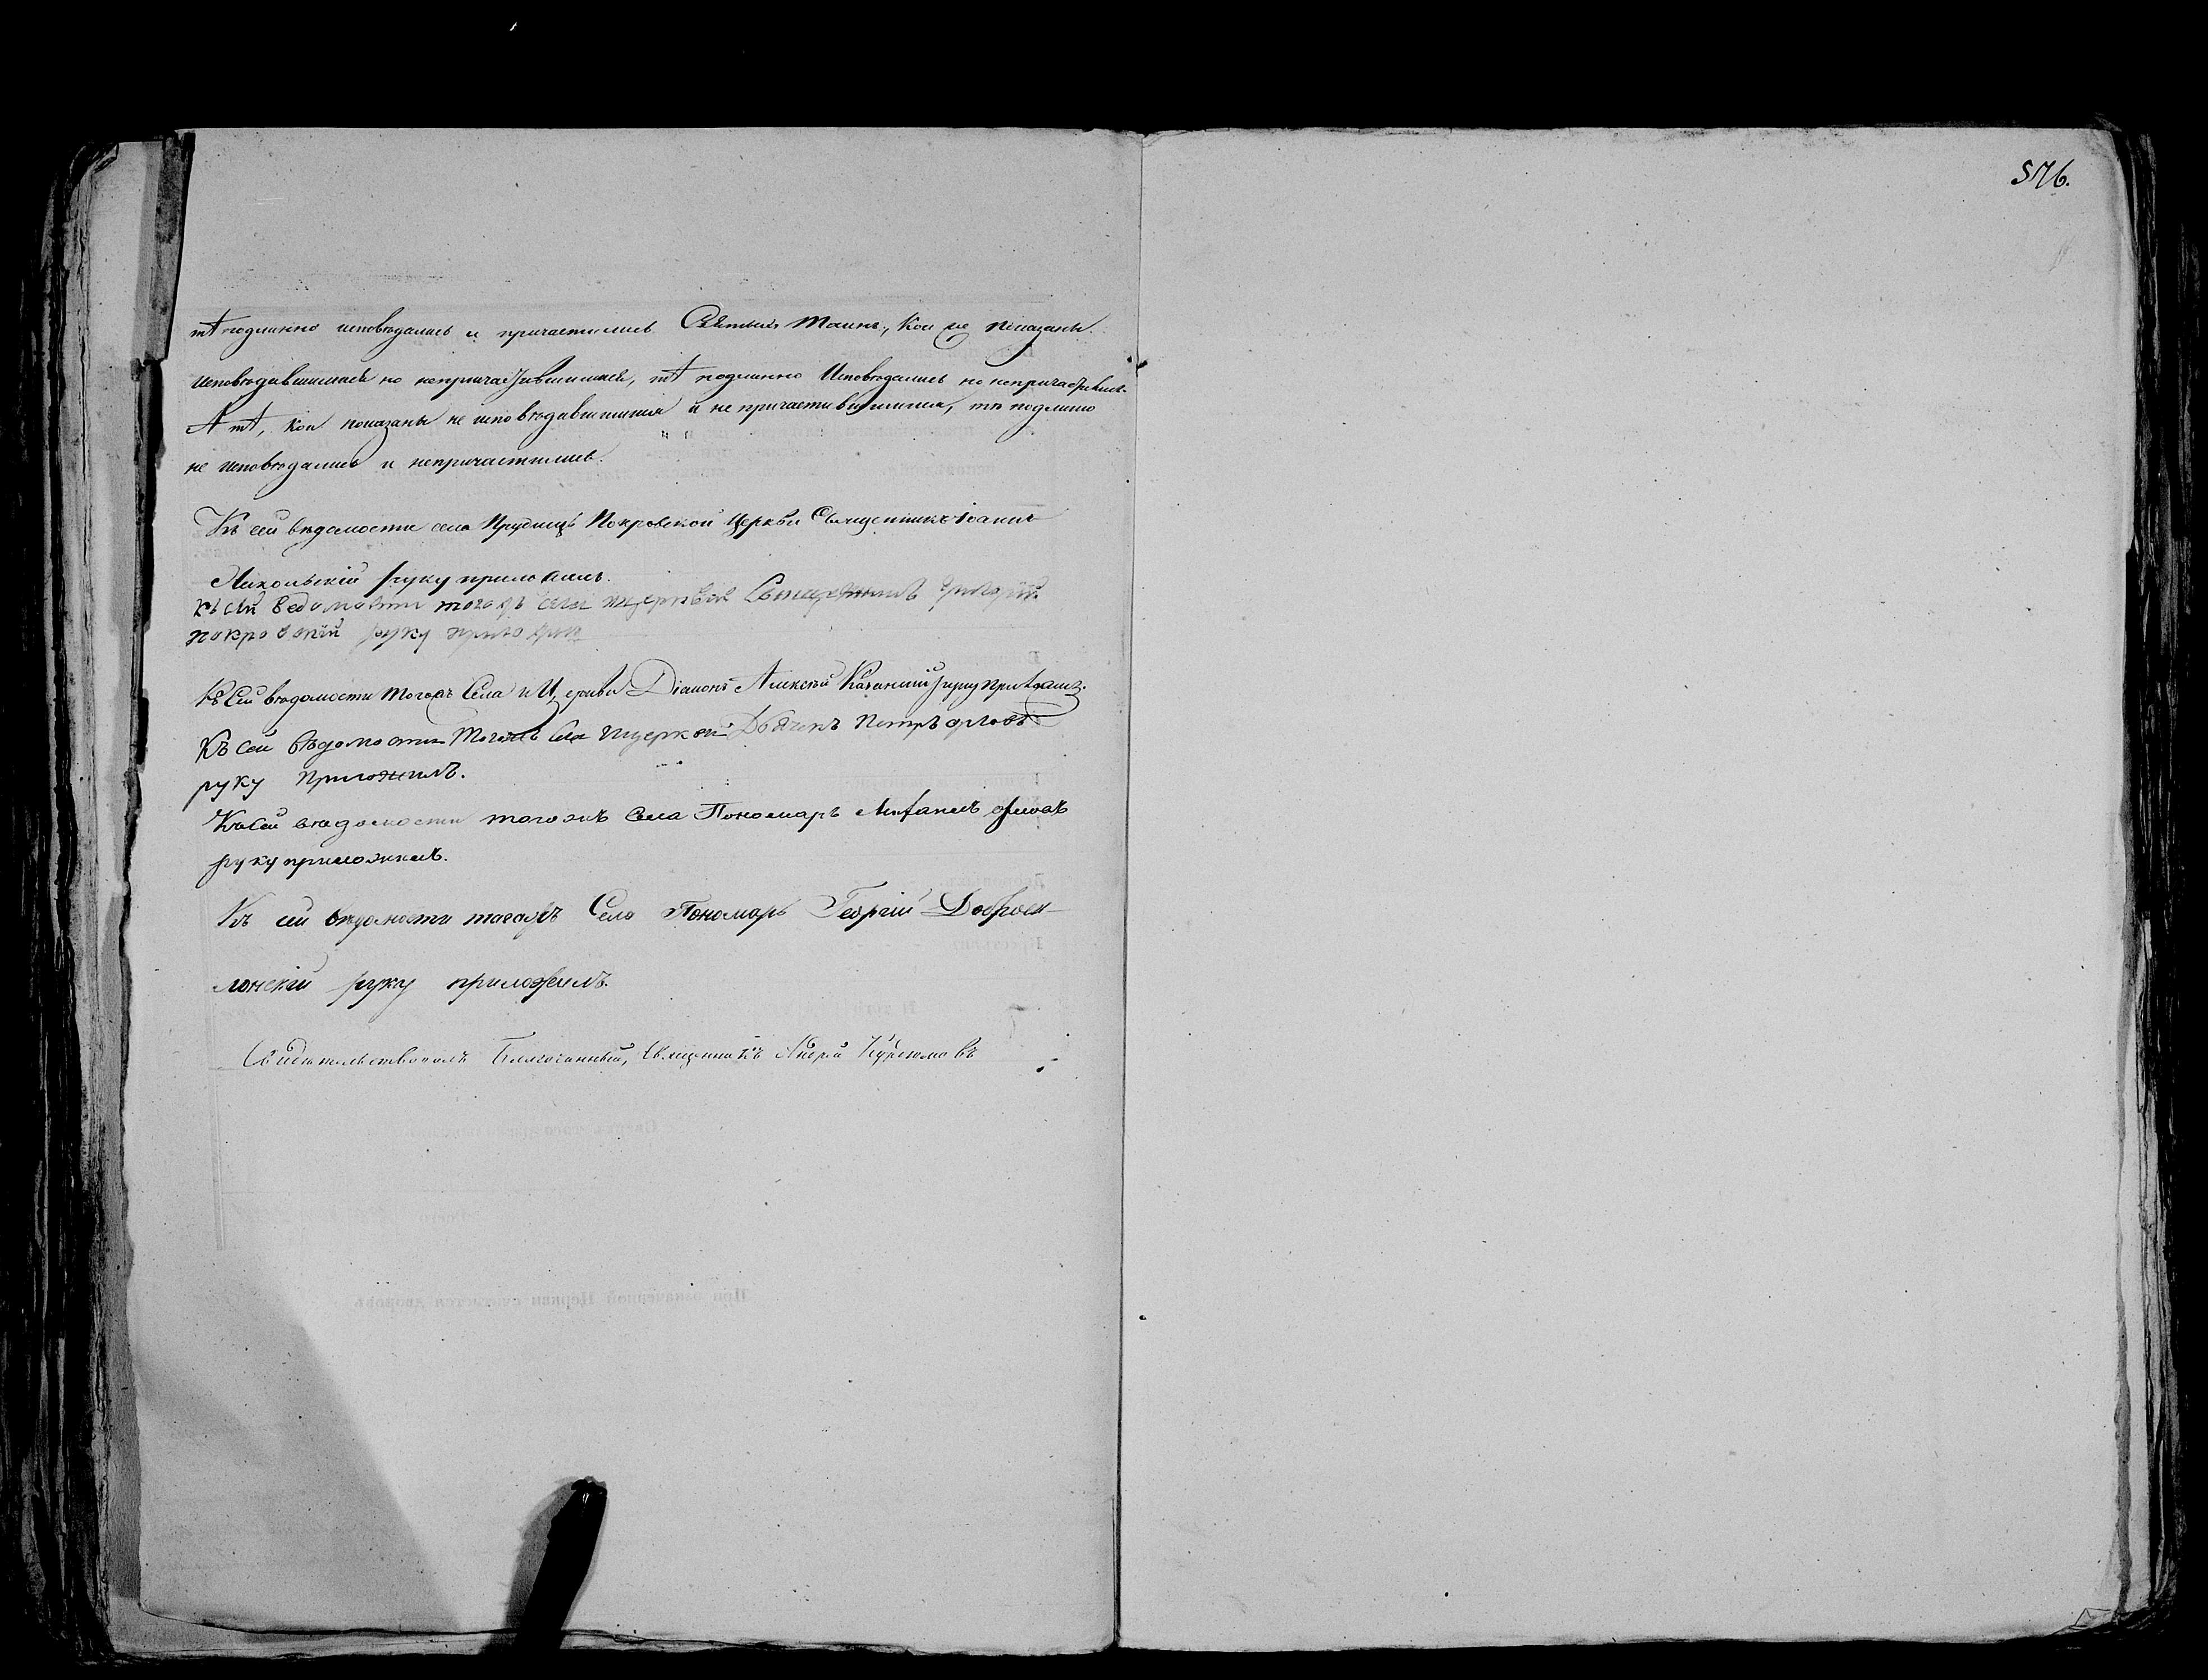 576.
тѣ подлинно исповѣдались и причастились Святыхъ Таинъ, Кои же показаны
исповѣдавшимися но непричастившимися, тѣ подлинно Исповѣдались но непричастились.
А тѣ, Кои показаны не исповѣдавшимися и не причастившимися, тѣ подлино
не исповѣдались и непричастились.
Къ сей вѣдомости села Прудищъ Покровской Церкви Священникъ Іоаннъ
Никольскій руку приложилъ.
къ сей ведомости тогожъ села ицеркви Священникъ
покровскій руку приложилъ
Къ Сей вѣдомости Тогожъ Села и Церкви Діаконъ Алексѣй Казанскій руку приложилъ.
Къ сей вѣдомости Тогожъ Села ицеркви Дьячекъ Петръ орловъ
руку приложилъ.
Ксей вѣдомости тогожъ Села Пономарь орловъ
руку приложилъ.
Къ сей вѣдомости тагожъ Села Пономарь Георгій Доброск-
лонскій руку приложилъ.
Свидѣтельствовалъ Благочинный, Священникъ Андрей